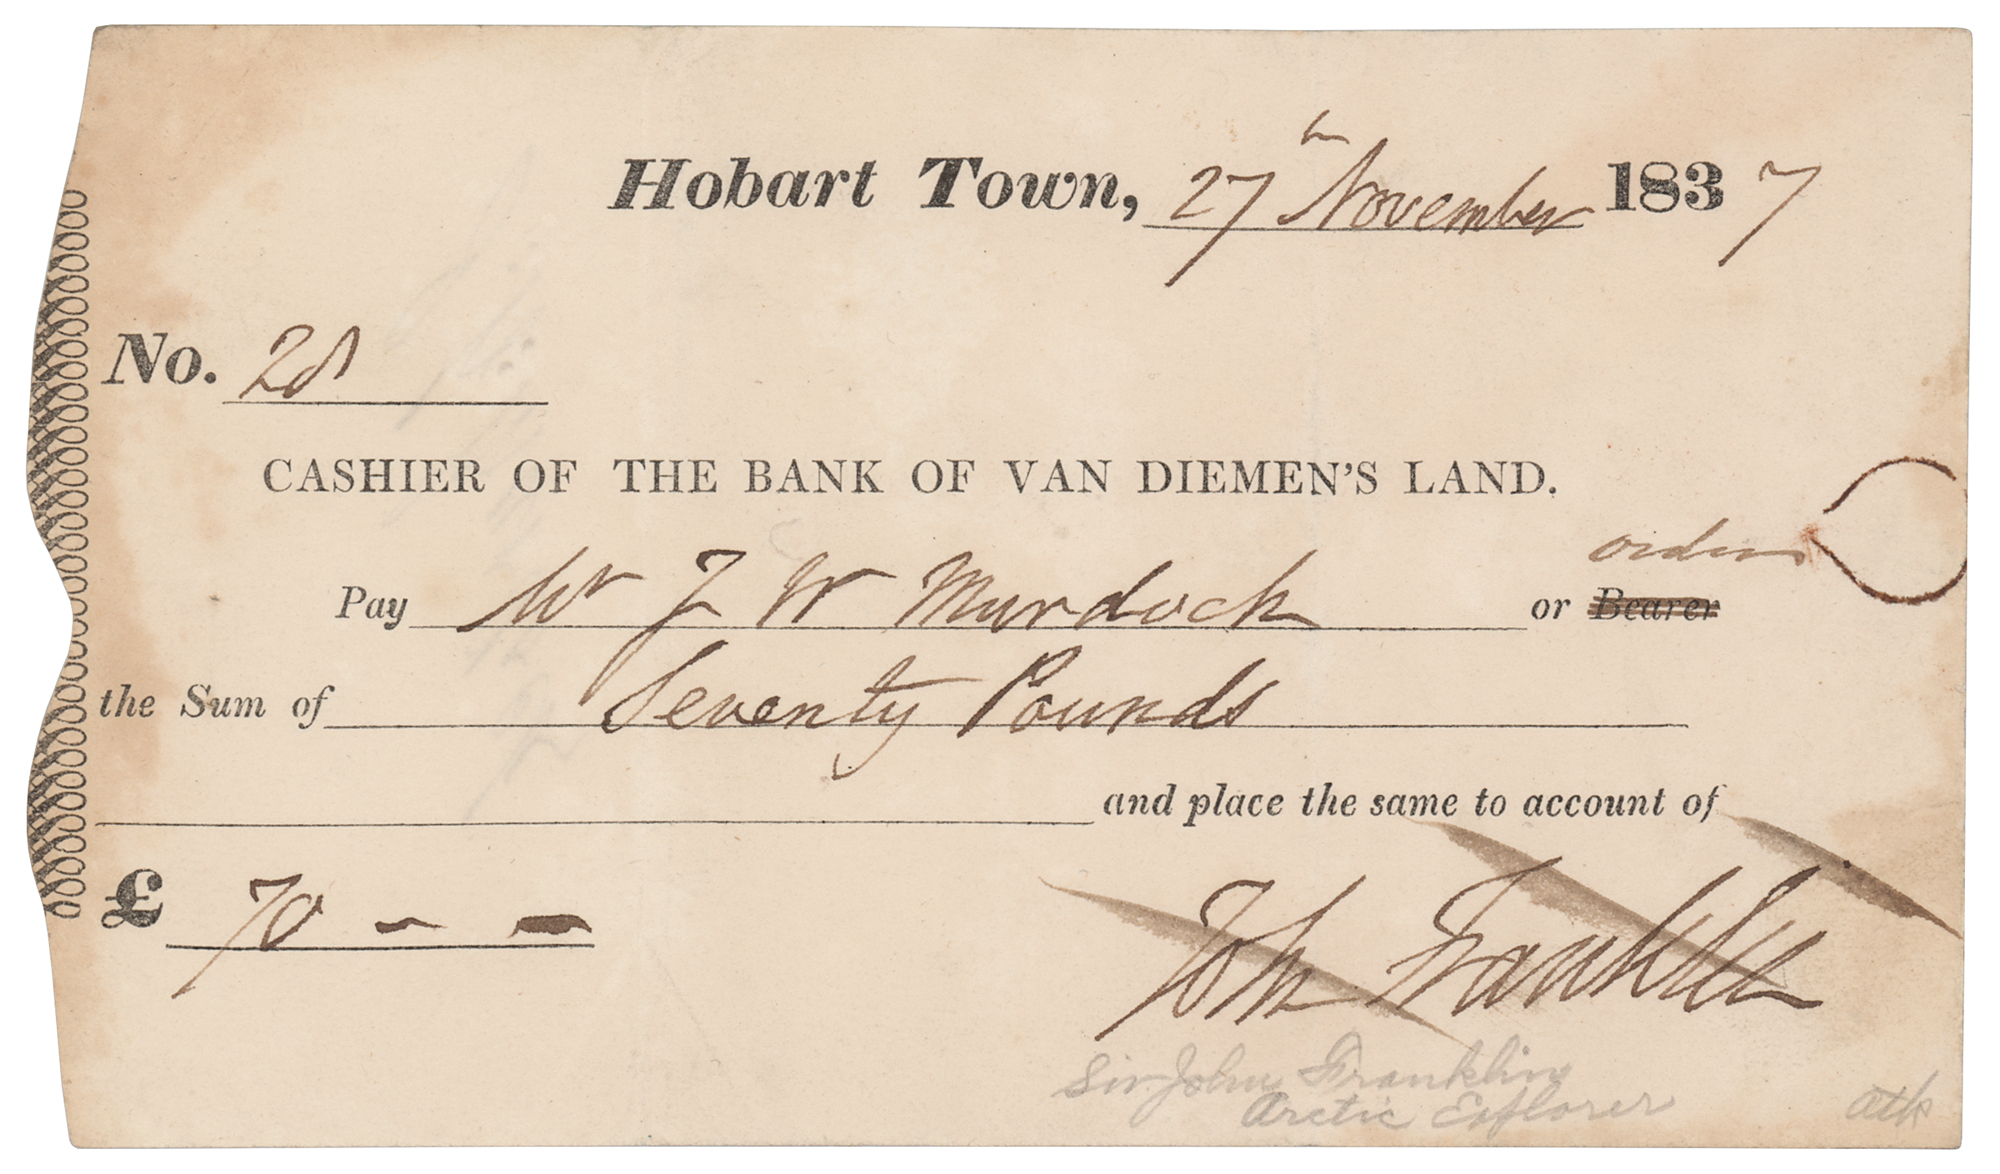 Hobart Town, 27th November 1837
No. 28
CASHIER OF THE BANK OF VAN DIEMEN'S LAND.
order
Pay Mr J W Murdoch or Bearer
the Sum of Seventy Pounds
and place the same to account of
£ 70 - -
John Franklin
Sir John Franklin
Arctic Explorer